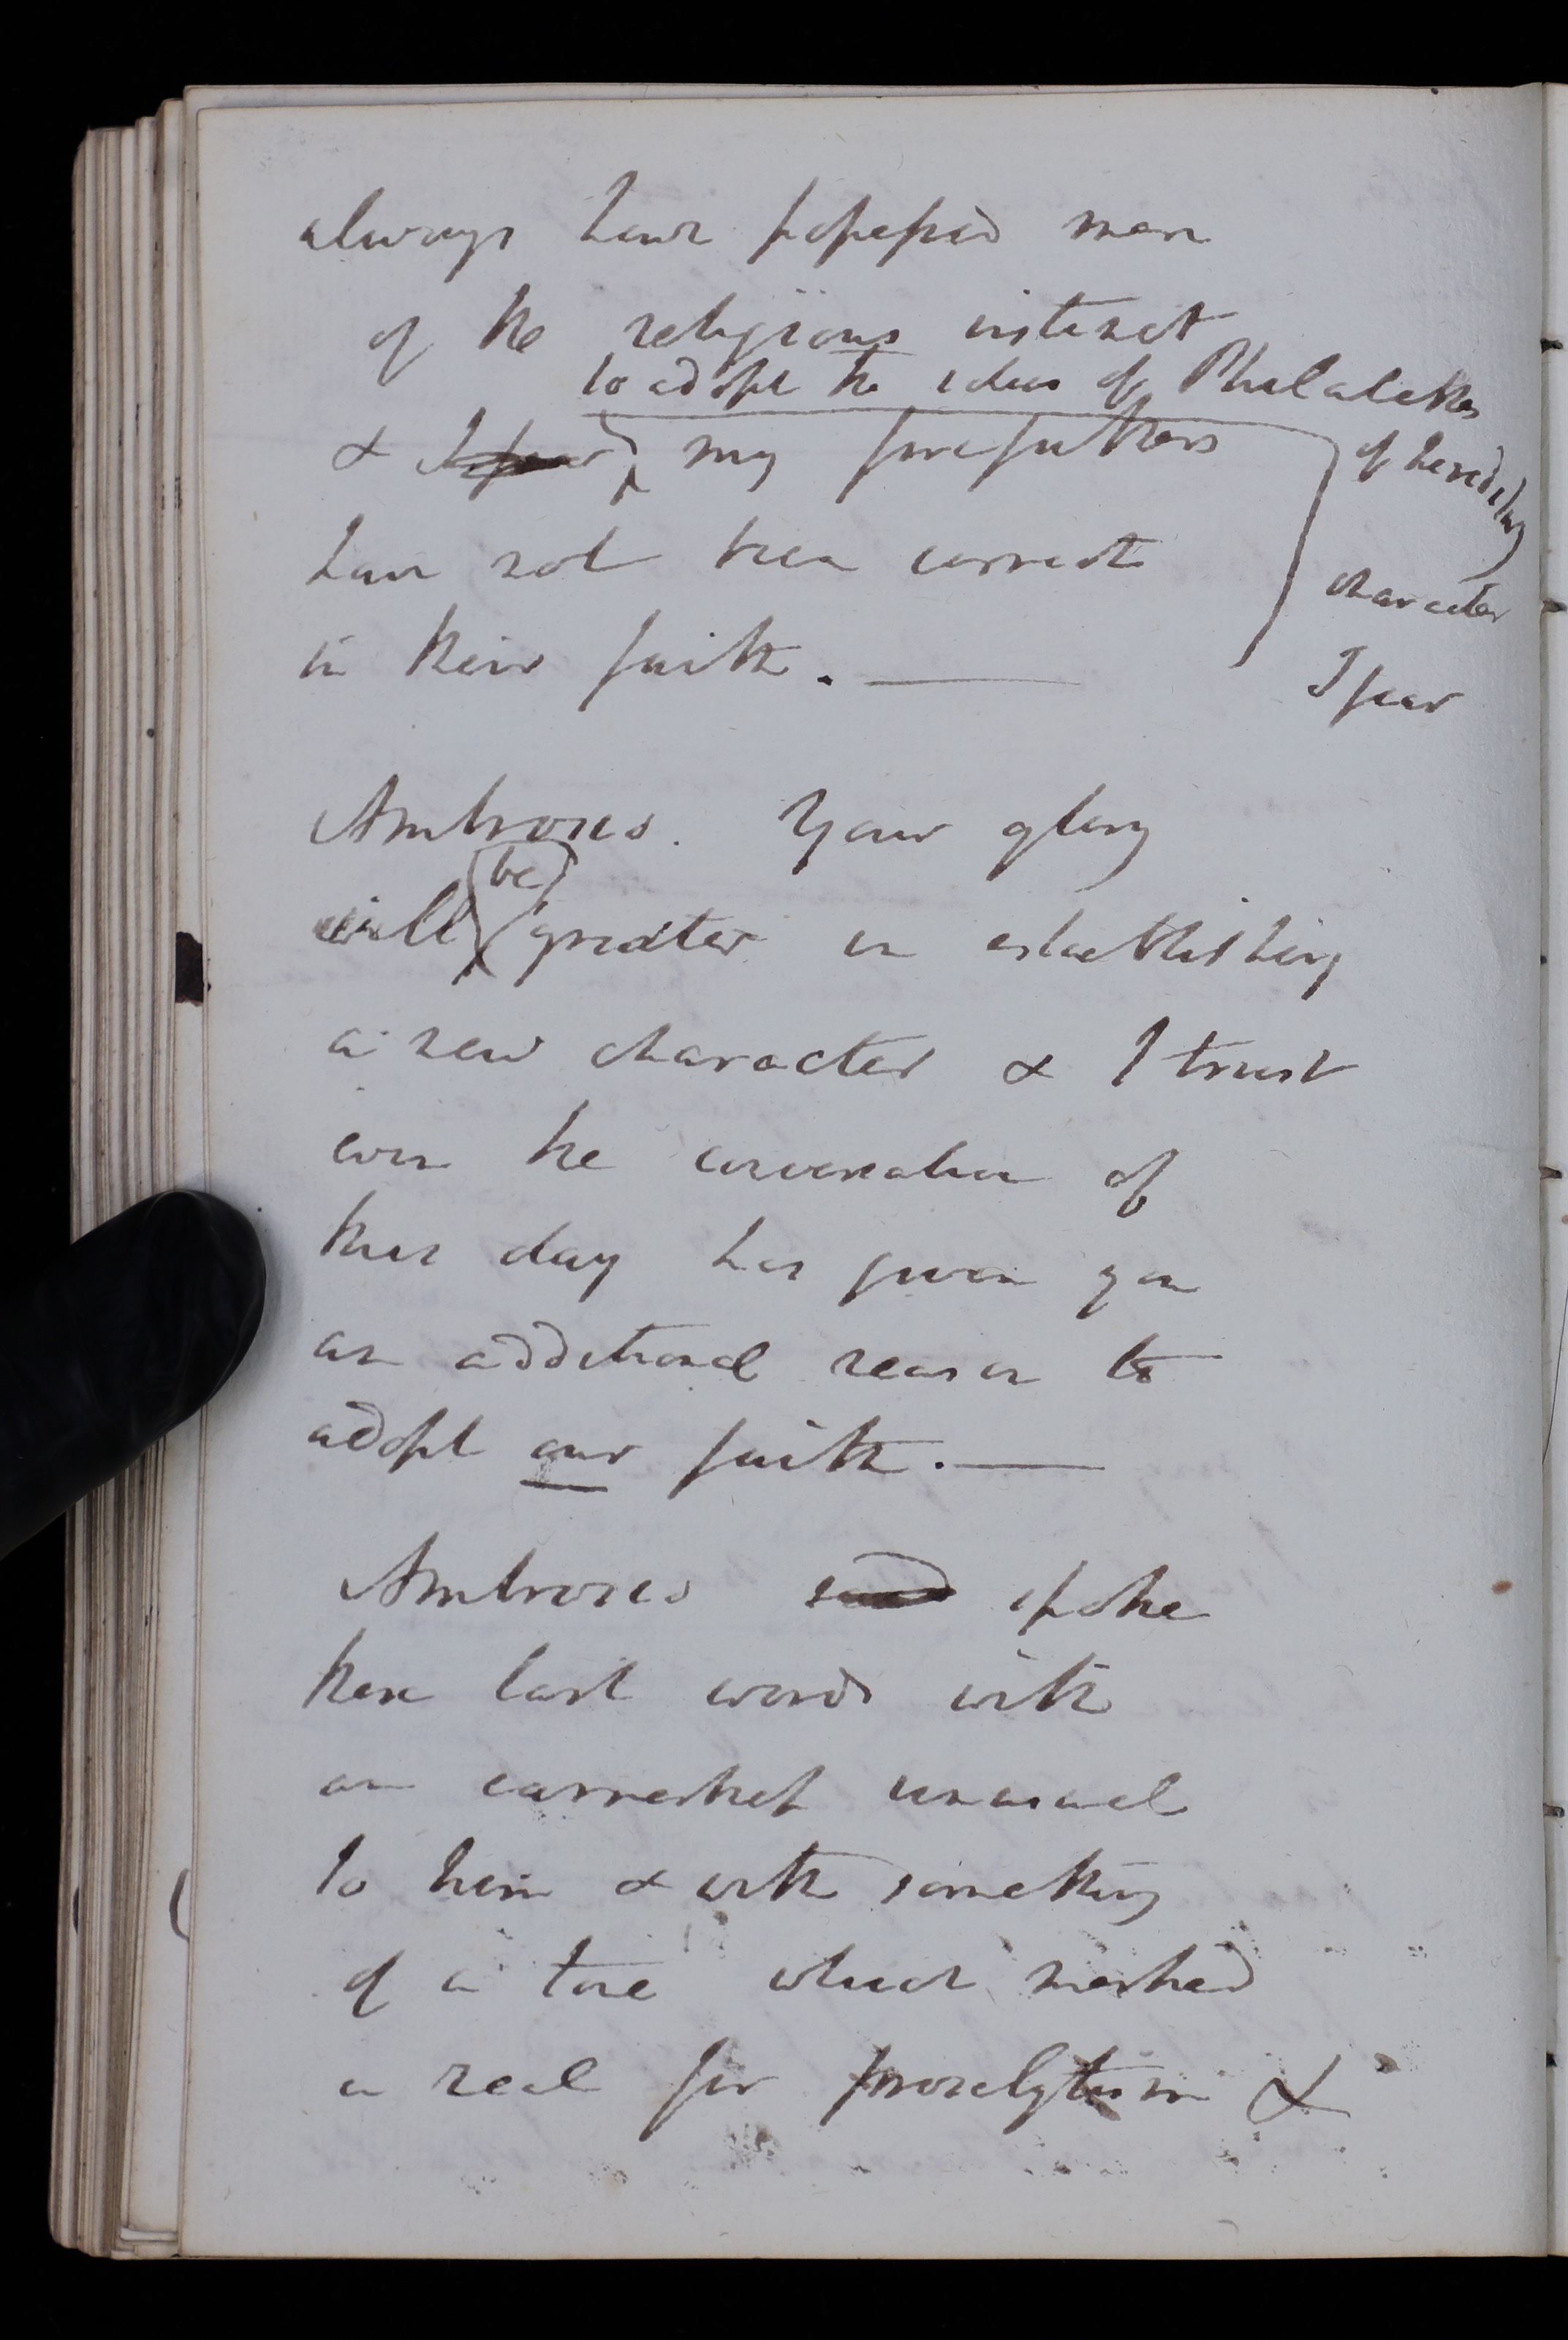 always have possessed more
of the religious instinct
to adopt the ideas of Philalethes
of hereditary
character
I fear
& I fear, my forefathers
have not been correct
in their faith. ——
Ambrosio. Your glory
will be greater in establishing
a new character & I trust
even the conversation of
this day has given you
an additional reason to
adopt our faith. ——
Ambrosio said spoke
these last words with
an earnestness unusual
to him & with something
of a tone which marked
a zeal for proselytism &